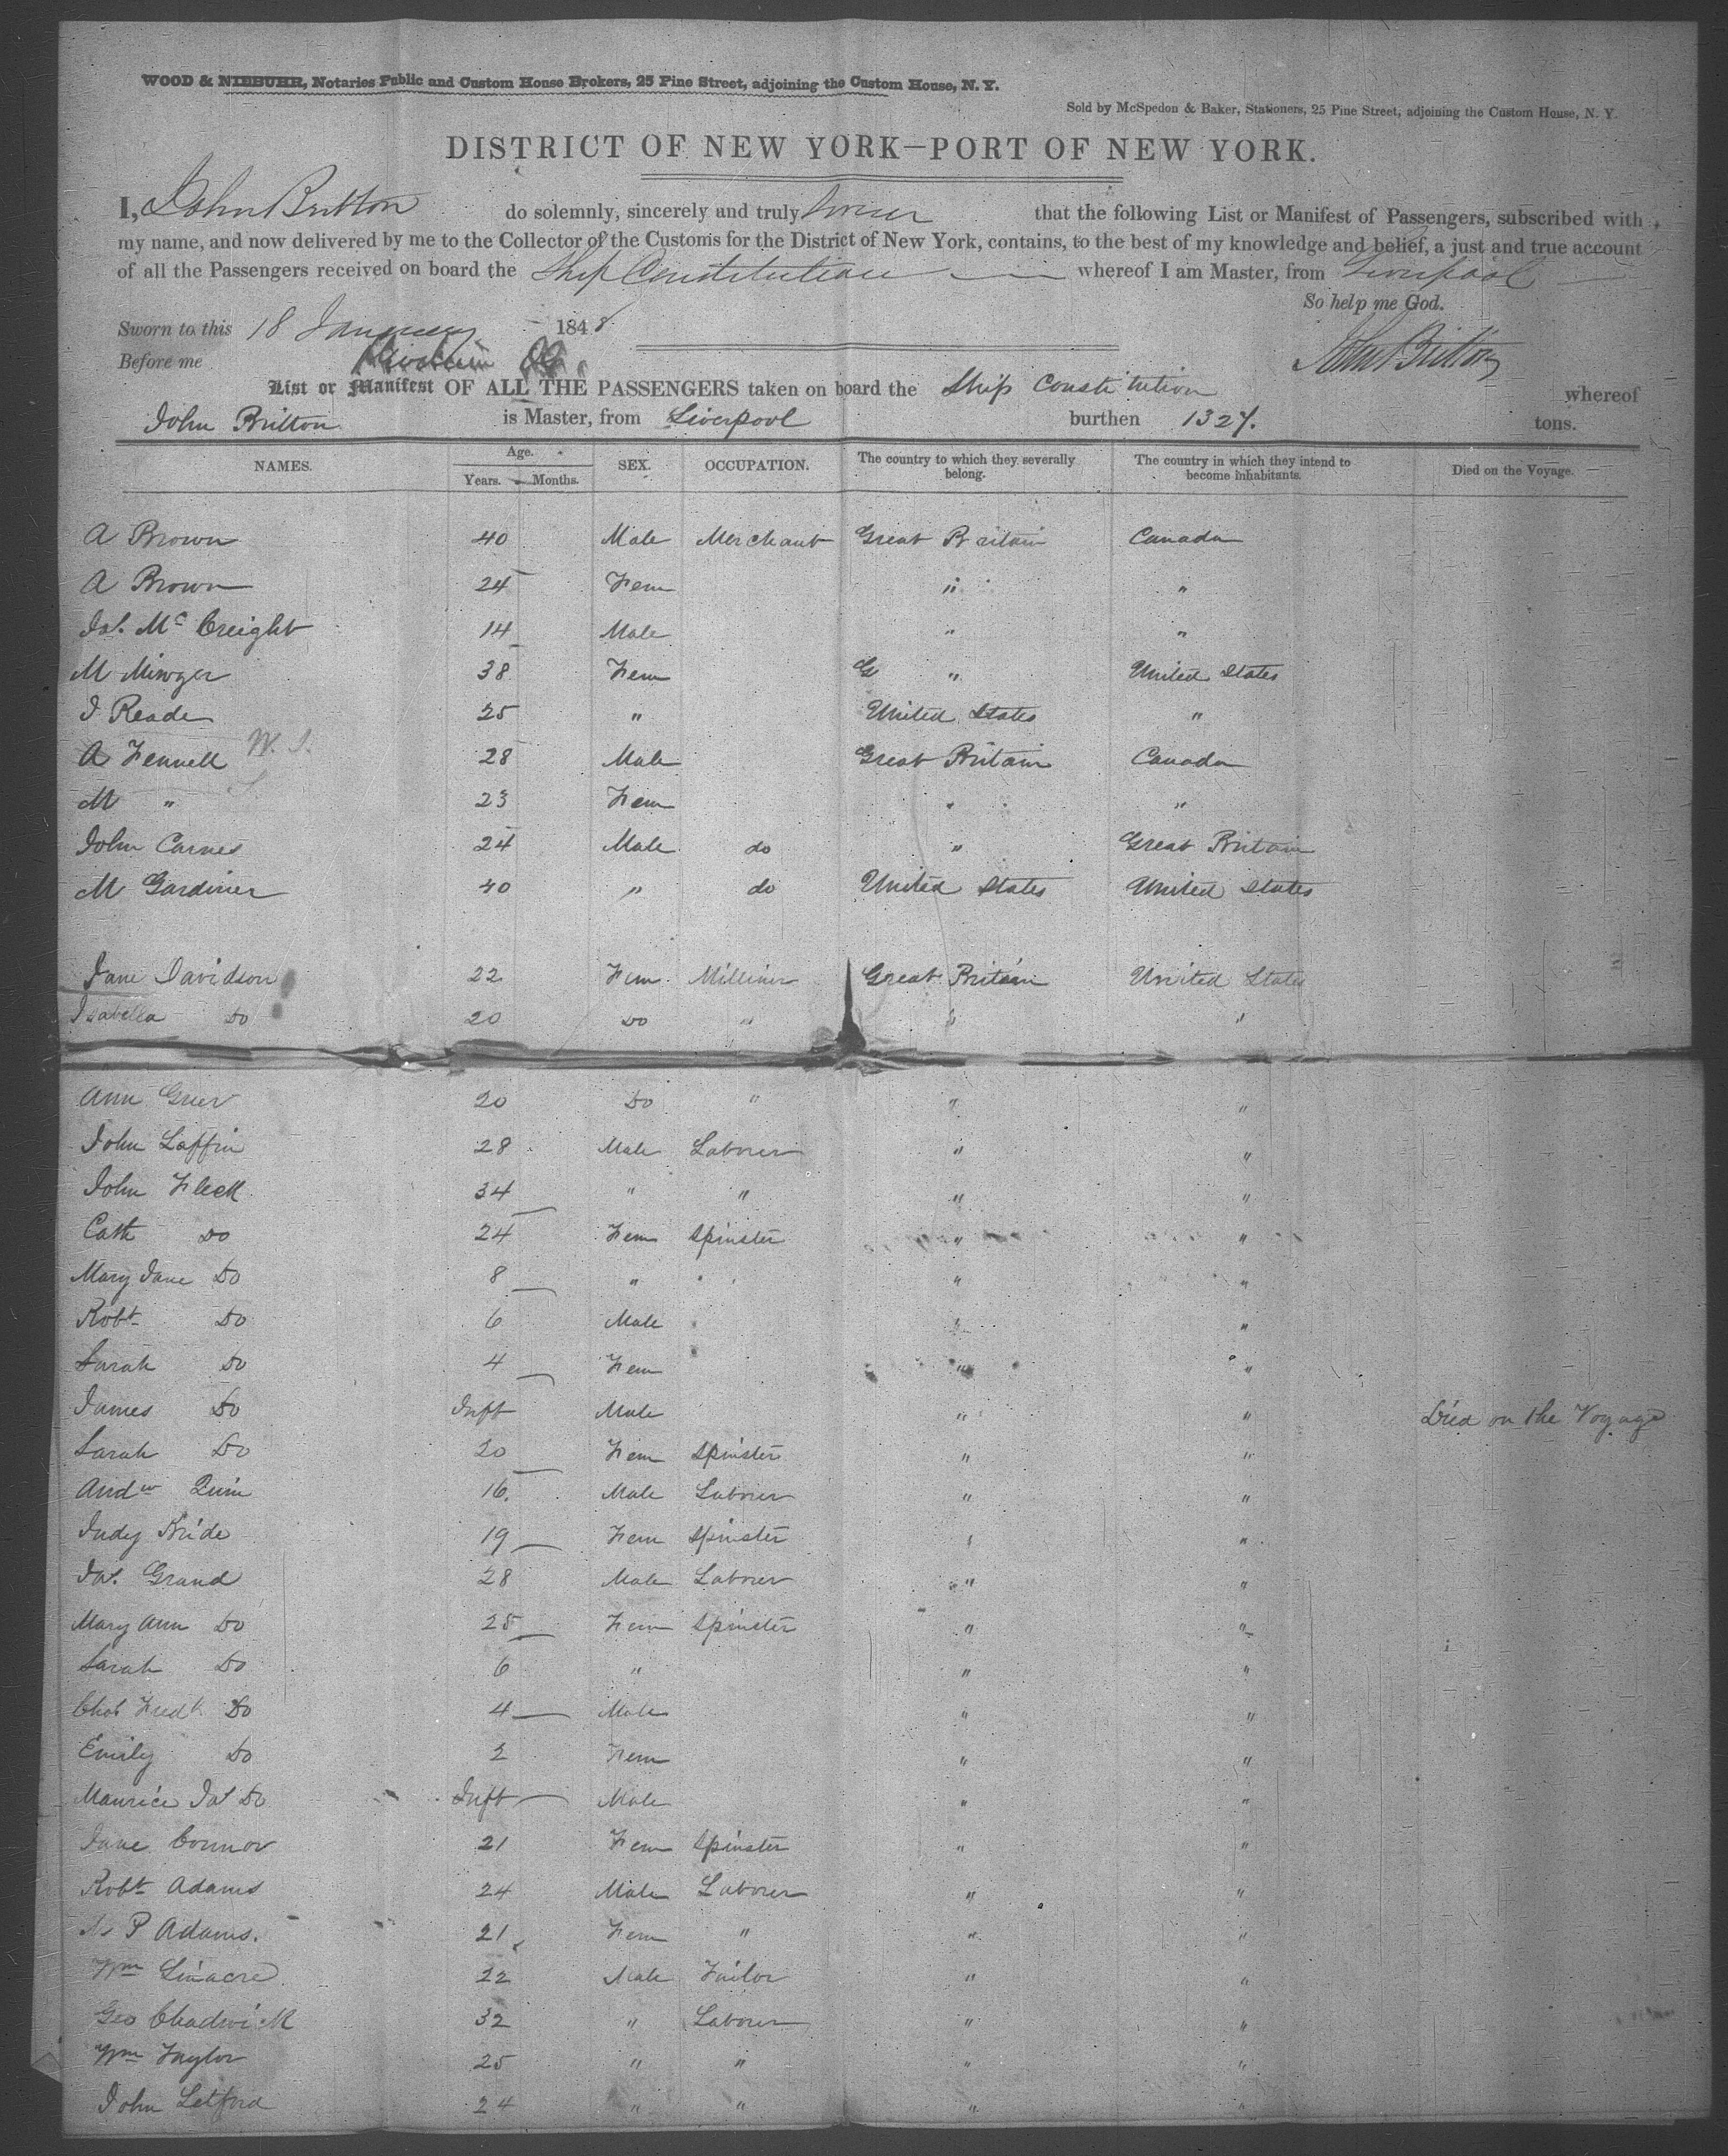 WOOD & NIEBUHR, Notaries Public and Custom House Brokers, 25 Pine Street, adjoining the Custom House, N. Y.
Sold by McSpedon & Baker, Stationers, 25 Pine Street, adjoining the Custom House, N. Y.
DISTRICT OF NEW YORK—PORT OF NEW YORK.
I, John Britton do solemnly, sincerely and truly swear that the following List or Manifest of Passengers, subscribed with
my name, and now delivered by me to the Collector of the Customs for the District of New York, contains, to the best of my knowledge and belief, a just and true account
of all the Passengers received on board the Ship Constitution whereof I am Master, from Liverpool
So help me God.
Sworn to this 18 January 1848
Before me
John Britton
List or Manifest OF ALL THE PASSENGERS taken on board the Ship Constitution whereof
John Britton is Master, from Liverpool burthen 1327. tons.
NAMES. Age. Years. Months. SEX. OCCUPATION. The country to which they severally belong. The country in which they intend to become inhabitants. Died on the Voyage.
A Brown 40 Male Merchant Great Britain Canada
A Brown 24 Fem " "
Jas. Mc Creight 14 Male " "
M 38 Fem G " United States
J Reade 25 " United States "
A Fennell 28 Male Great Britain Canada
M " 23 Fem " "
John Carnes 24 Male do " Great Britain
M Gardiner 40 " do United States United States
Jane Davidson 22 Fem Milliner Great Britain United States
Isabella Do 20 Do " " "
Ann Grier 20 Do " " "
John Laffin 28 Male Laborer " "
John Fleck 34 " " " "
Cath Do 24 Fem Spinster " "
Mary Jane Do 8 " " " "
Robt Do 6 Male " "
Sarah Do 4 Fem " "
James Do Inft Male " " Died on the Voyage
Sarah Do 20 Fem Spinster " "
Andw Quin 16 Male Laborer " "
Judy 19 Fem Spinster " "
Jas. Grand 28 Male Laborer " "
Mary Ann Do 25 Fem Spinster " "
Sarah Do 6 " " "
Chas Fredk Do 4 Male " "
Emily Do 2 Fem " "
Maurice Jas Do Inft Male " "
Jane Connor 21 Fem Spinster " "
Robt Adams 24 Male Laborer " "
P Adams. 21 Fem " " "
Wm Linacre 22 Male Tailor " "
Geo Chadwick 32 " Laborer " "
Wm Taylor 25 " " " "
John Letford 24 " " " "